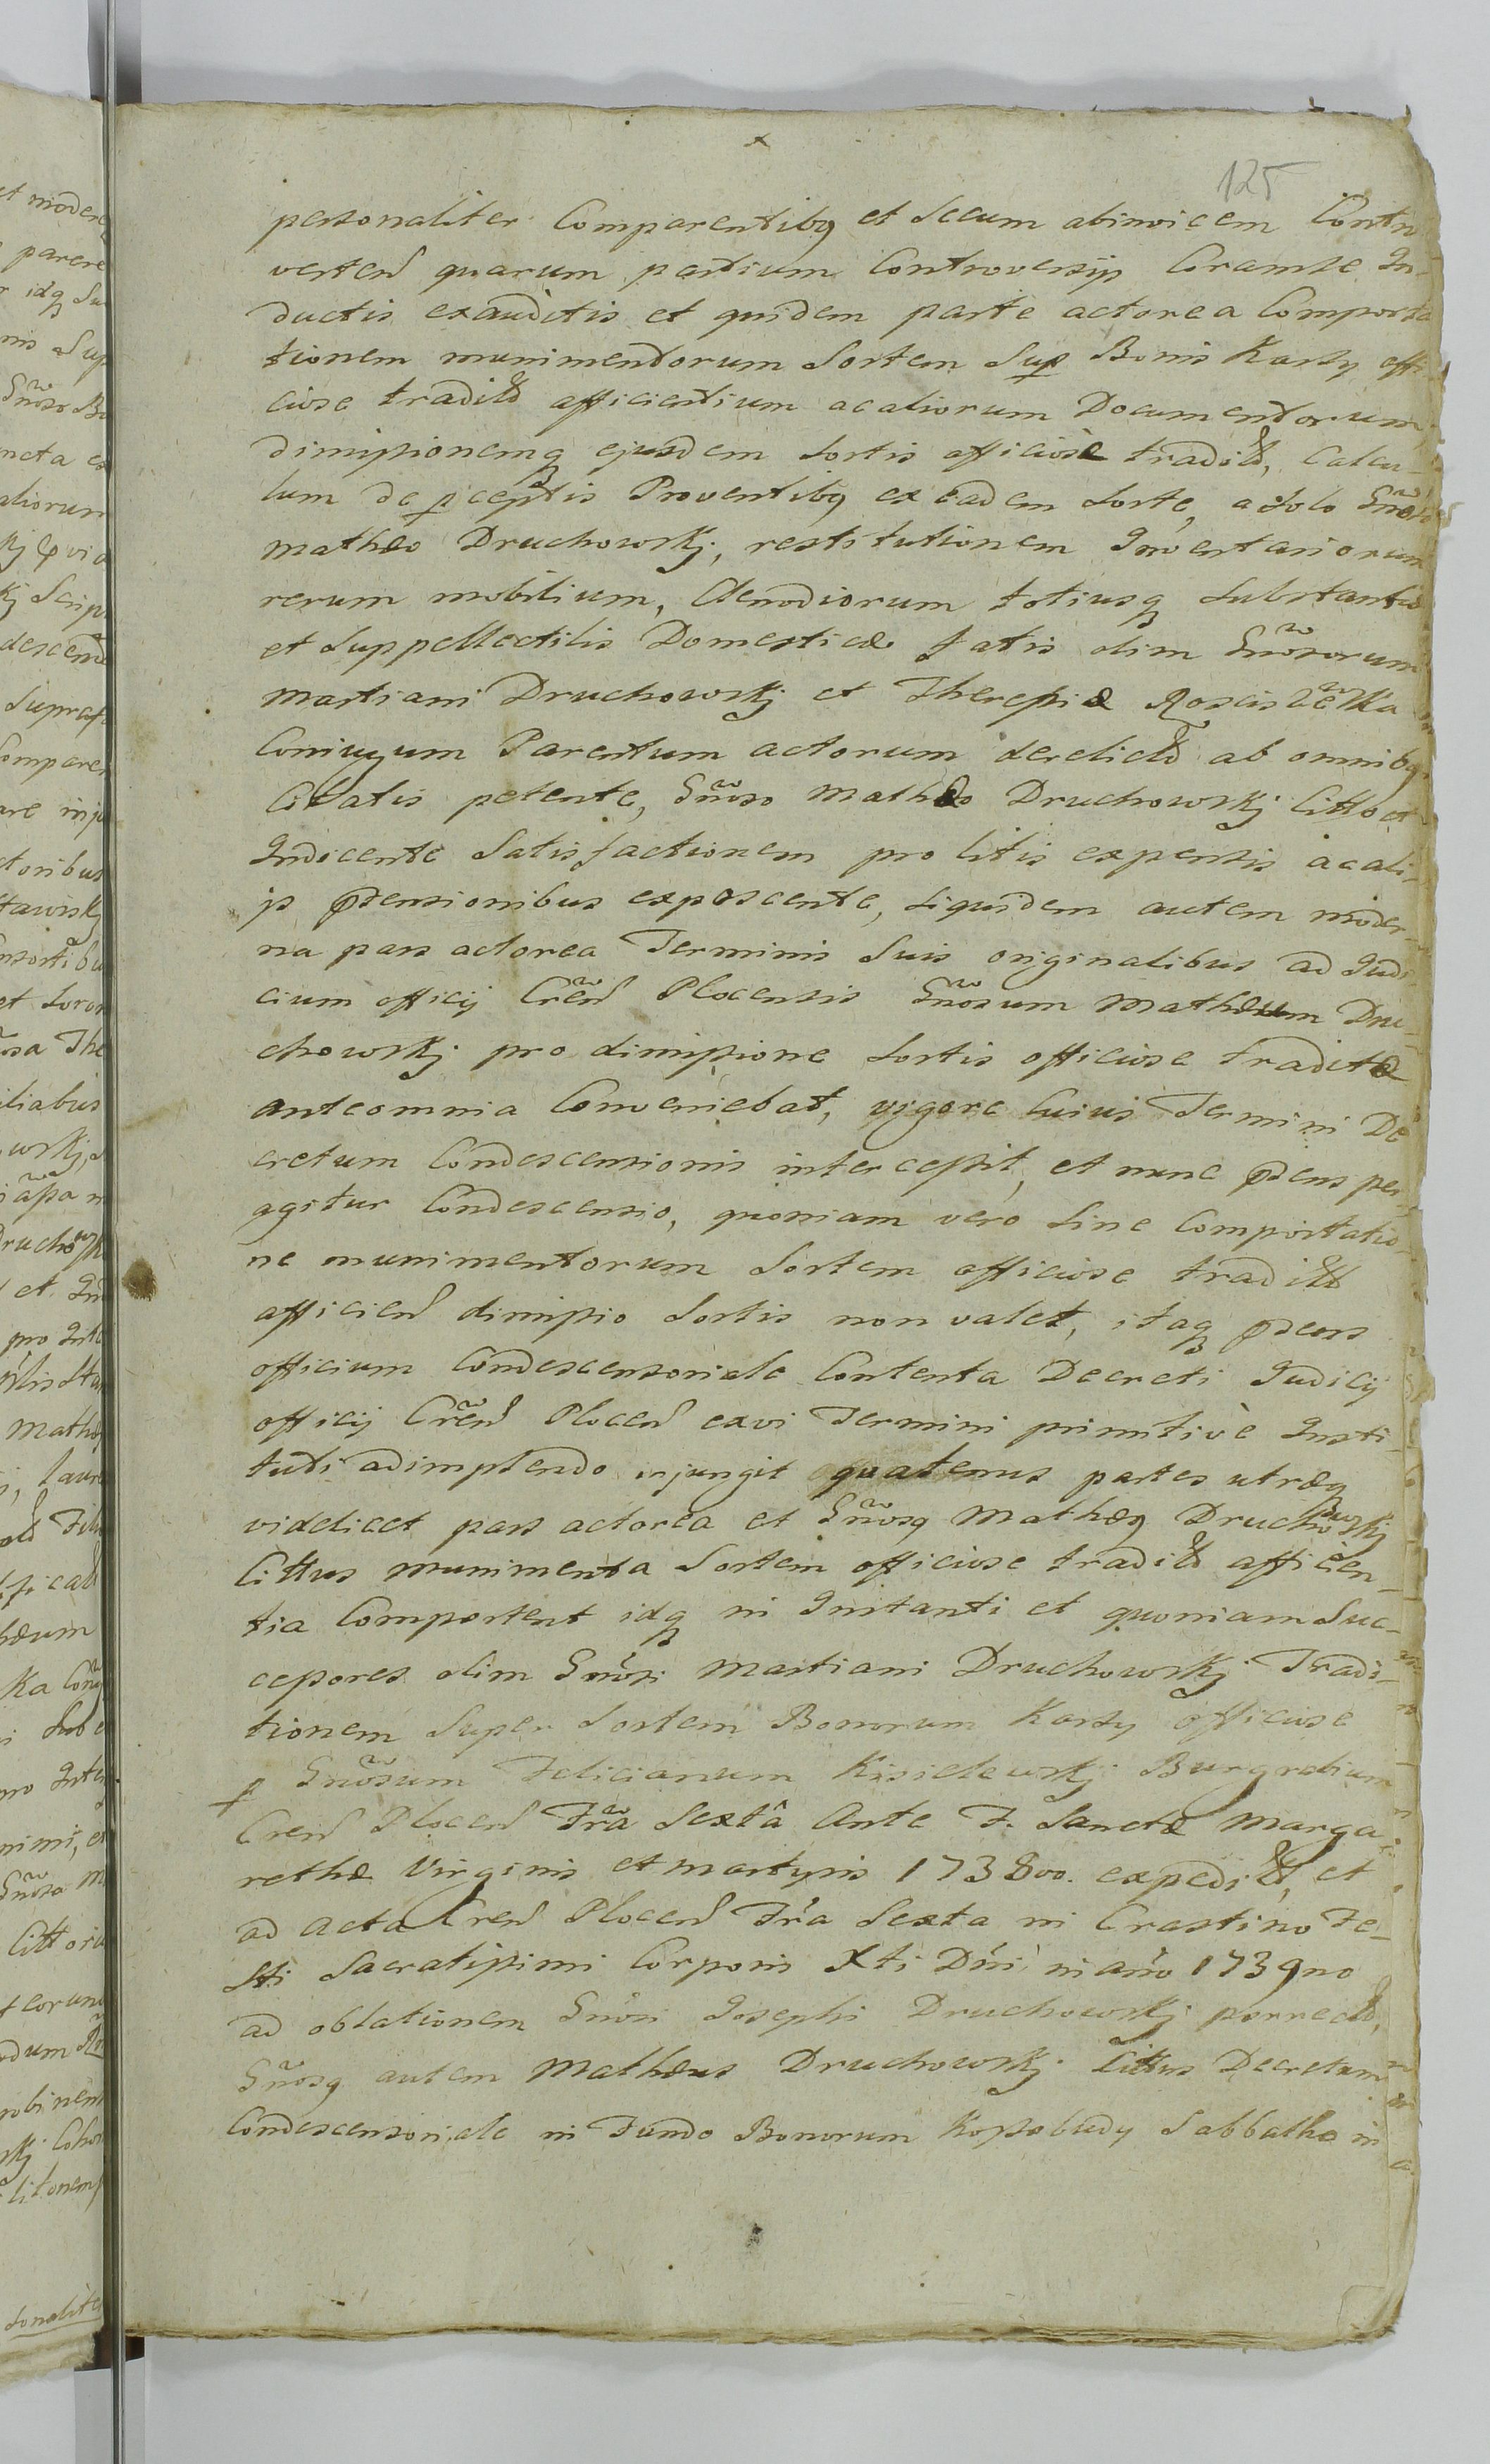 125
personaliter Comparentibq et Secum abinvicem Contro
verten quarum partium Controversijs Coram se In-
ductis exauditis et quidem parte actorea Comporta
tionem munimentorum Sortem Sup Bonis Karsy offi
ciose tradit afficientium ac aliorum Documentorum,
dimissionemq ejusdem Sortis officiose tradit, Calcu-
lum de pceptis Proventibq ex eadem Sorte, a Solo Gnoso
Mathæo Druchowskj, restitutionem Inventariorum
rerum mobilium, Clenodiorum totiusq Substantiæ
et Suppellectilis Domesticæ fatis olim Gnosorum
Martiani Druchowskj et Theresiæ
Coniugum Parentum actorum derelict ab omnibq
Citatis petente, Gnoso Mathæo Druchowskj Citto et
Indicente Satisfactionem pro litis expensis ac ali-
js ptensionibus exposcente, Siquidem autem moder-
na pars actorea Terminis Suis originalibus ad Judi
cium officij Cren Plocensis Gnosum Mathæum Dru-
chowskj pro dimissione Sortis officiose traditæ
ante omnia Conveniebat, vigore Cuius Termini De
cretum Condescensionis intercessit, et nunc psens per
agitur Condescensio, quoniam vero Sine Comportatio-
ne munimentorum Sortem officiose tradit
afficien dimissio Sortis non valet, itaq psens
officium Condescensoriale Contenta Decreti Judicij
officij Cren Plocen ex vi Termini primitive Insti-
tuti adimplendo injungit quatenus partes utræq
videlicet pars actorea et Gnosq Mathæq Druchowskj
Cittus munimenta Sortem officiose tradit afficien-
tia Comportent idq in Instanti et quoniam Suc-
cessores olim Gnosi Martiani Druchowskj Tradi-
tionem Super Sortem Bonorum Karsy officiose
p Gnosum Felicianum Kisielewskj Burgrabium
Cren Plocen Fra Sexta Ante F. Sanctæ Marga-
rethæ Virginis et Martyris 1738vo. expedit, et
ad Acta Cren Plocen Fra Sexta in Crastino Fe-
sti Sacratissimi Corporis Xti Dni in ano 1739no
ad oblationem Gnosi Josephi Druchowskj porrect,
Gnosq autem Mathæus Druchowskj Cittus Decretum
Condescensoriale in Fundo Bonorum Kossobudy Sabbatho in